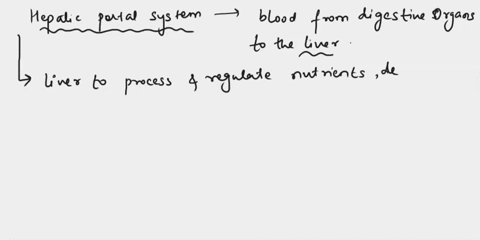 Hepatic portal system → blood from digestive organs
to the liver.
↳ liver to process & regulate nutrients, de